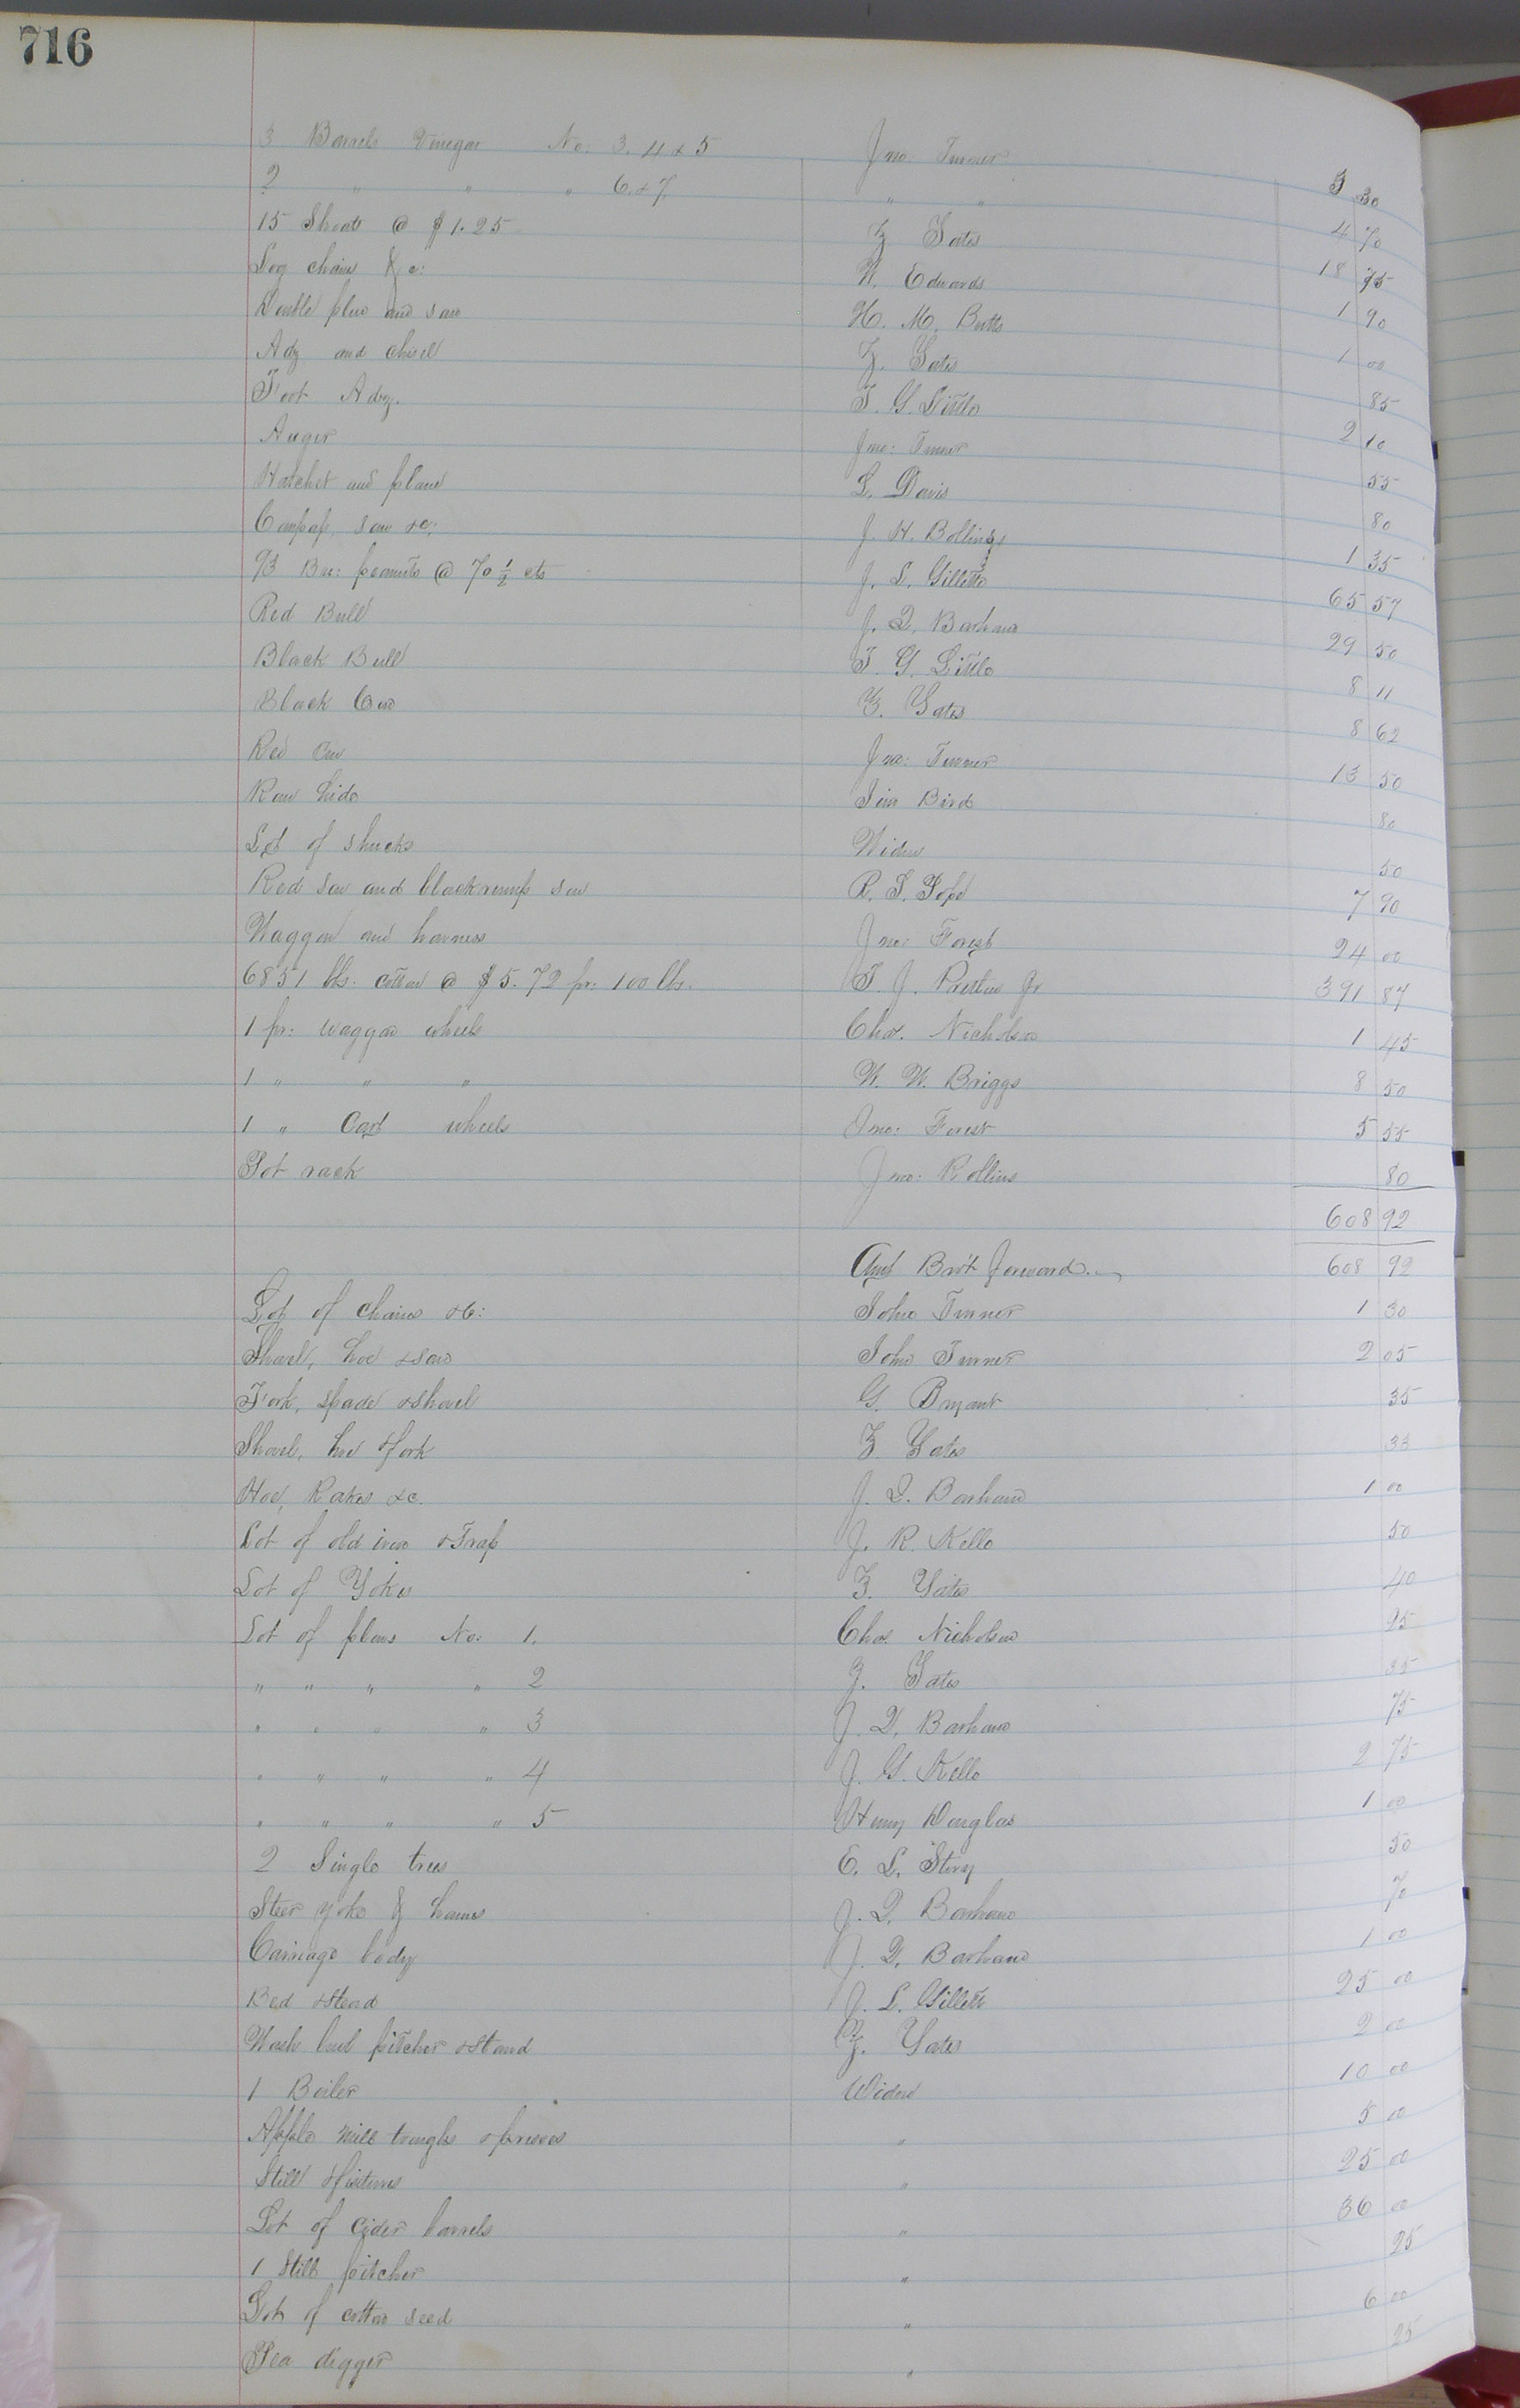 716
3 Barrels Vinegar No: 3. 4 & 5 Jno Turner 3 30
2 " " " 6 & 7 " " 4 70
15 Shoats @ $1.25 Z Yates 18 75
Log chain &c: W. Edwards 1 90
Double plow and saw H. M. Butts 1 00
Adz and chisel Z. Yates 85
Foot Adz. T. G. Little 2 10
Auger Jno: Turner 55
Hatchet and plane L. Davis 80
Compass, saw &c: J. H. Bollings 1 35
93 Bu: peanuts @ 70 1/2 cts J. L. Gillette 65 57
Red Bull J. Q. Barham 29 50
Black Bull T. G. Little 8 11
Black Cow Z. Yates 8 62
Red Cow Jno: Turner 13 50
Raw hide Jim Bird 80
Lot of shucks Widow 50
Red sow and blackrump sow R. S. Pope 7 90
Waggon and harness Jno: Forest 24 00
6851 lbs. cotton @ $5.72 pr: 100 lbs. T. J. Pretlow Jr 391 87
1 pr: waggon wheels Chas. Nicholson 1 45
1 " " " W. W. Briggs 8 50
1 " Cart wheels Jno: Forest 5 55
Pot rack Jno: Rollins 80
608 92
Amt Bro't forward. 608 92
Lot of chains &c: John Turner 1 30
Shovel, hoe & saw John Turner 2 05
Fork, spade & shovel G. Bryant 35
Shovel, hoe & fork Z. Yates 33
Hoe, Rakes &c. J. Q. Barham 1 00
Lot of old iron & Trap J. R. Kello 50
Lot of Yokes Z. Yates 40
Lot of plows No: 1. Chas. Nicholson 25
" " " " 2 Z. Yates 35
" " " " 3 J. Q. Barham 75
" " " " 4 J. G. Kello 2 75
" " " " 5 Henry Douglas 1 00
2 Single trees E. L. Story 50
Steer Yoke & hames J. Q. Barham 70
Carriage body J. Q. Barham 1 00
Bed & Stead J. L. Gillett 25 00
Wash bowl pitcher & stand Z. Yates 2 00
1 Boiler Widow 10 00
Apple mill troughs & presses " 5 00
Still & fixtures " 25 00
Lot of Cider barrels " 36 00
1 Still pitcher " 25
Lot of cotton seed " 6 00
Pea digger " 25